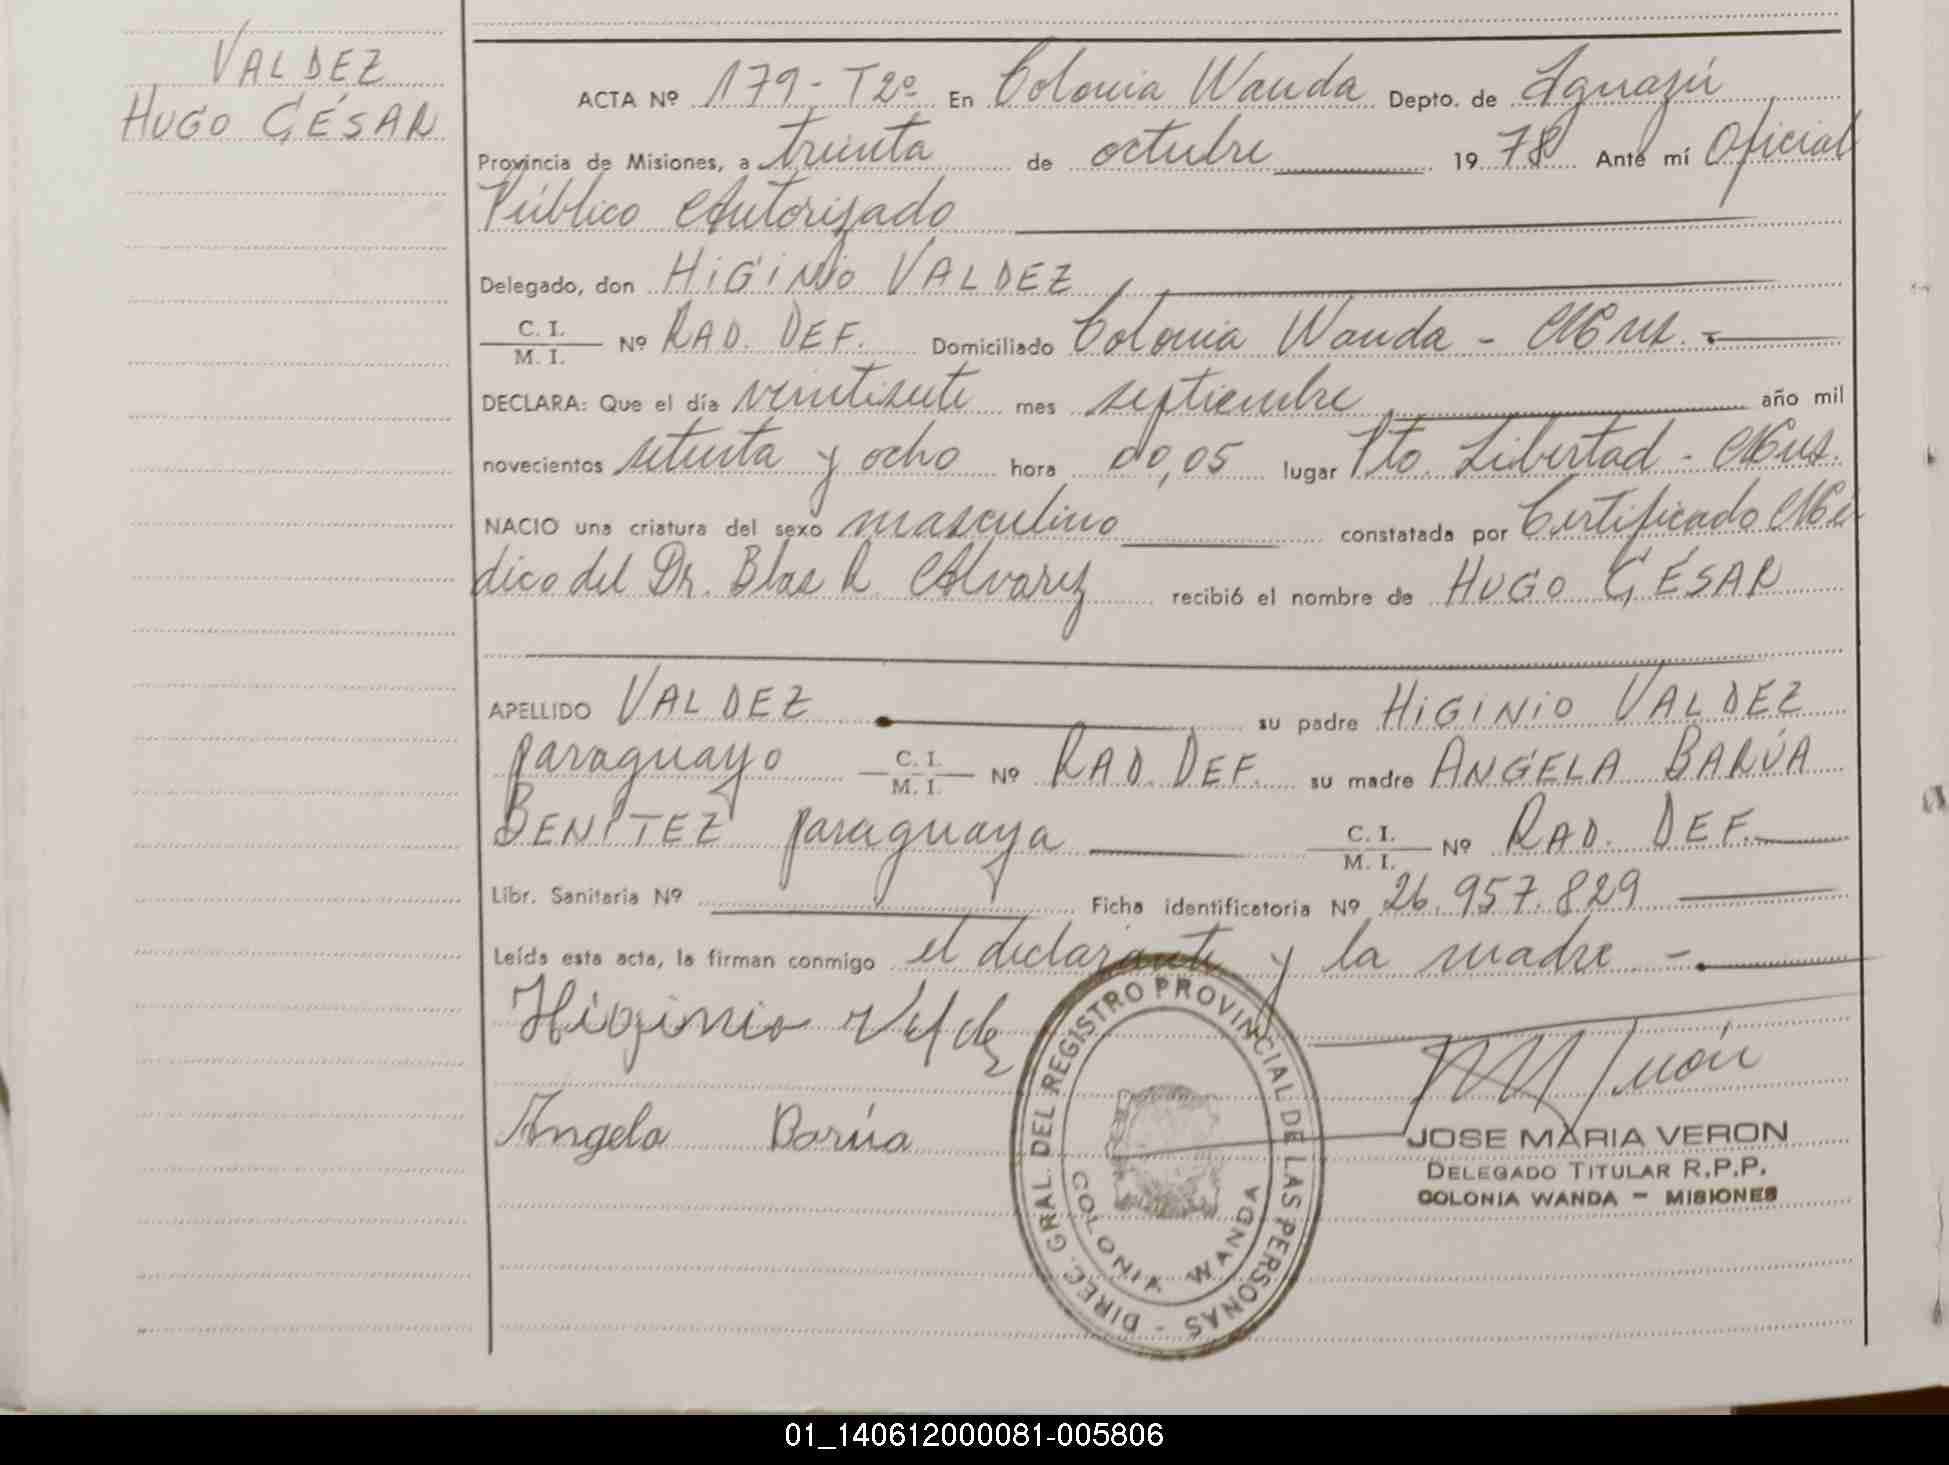 VALDEZ
HUGO CÉSAR
ACTA Nº 179 - T2º En Colonia Wanda Depto. de Iguazú
Provincia de Misiones, a treinta de octubre 19 78 Ante mí Oficial
Público Autorizado
Delegado, don HIGINIO VALDEZ
C. I.
M. I. Nº RAD. DEF. Domiciliado Colonia Wanda - Mns. -
DECLARA: Que el día veintisiete mes septiembre año mil
novecientos setenta y ocho hora 00,05 lugar Pto. Libertad - Mns.
NACIO una criatura del sexo masculino constatada por Certificado Mé
dico del Dr. Blas R. Alvarez recibió el nombre de HUGO CÉSAR
APELLIDO VALDEZ su padre HIGINIO VALDEZ
paraguayo C. I. M. I. Nº RAD. DEF. su madre ANGELA BARÚA
BENITEZ paraguaya C. I. M. I. Nº RAD. DEF.
Libr. Sanitaria Nº Ficha identificatoria Nº 26.957.829
Leída esta acta, la firman conmigo el declarante y la madre -.
Higinio
Angela Barúa
DIREC. GRAL. DEL REGISTRO PROVINCIAL DE LAS PERSONAS -
COLONIA WANDA
JOSE MARIA VERON
DELEGADO TITULAR R.P.P.
COLONIA WANDA - MISIONES
01_140612000081-005806